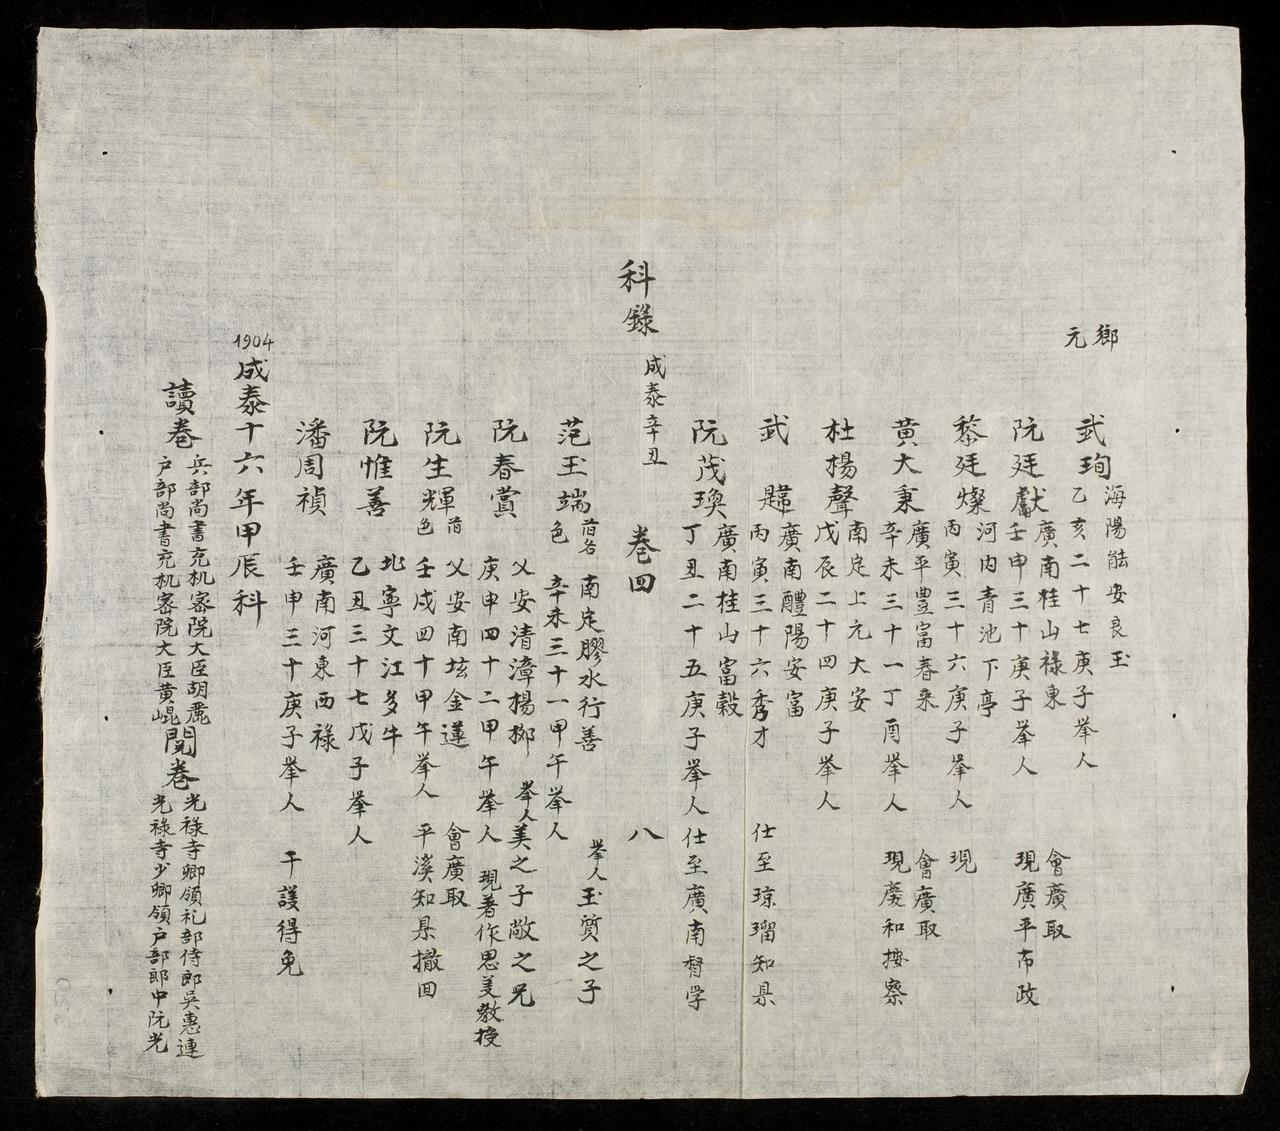 鄉元
武珣
海陽能安良玉
乙亥二十七庚子举人
阮廷獻
廣南桂山祿東
壬申三十庚子举人
會廣取
現廣平布政
黎廷燦
河内青池下亭
丙寅三十六庚子举人
現
黃大秉
廣平豊富春来
辛未三十一丁酉举人
會廣取
現慶和按察
杜楊聲
南定上元大安
戊辰二十四庚子举人
武
廣南醴陽安富
丙寅三十六秀才
仕至琼瑠知県
阮茂瑍
廣南桂山富穀
丁丑二十五庚子举人
仕至廣南督学
科錄
成泰辛丑
卷四
八
范玉端
南定膠水行善
辛未三十一甲午举人
举人玉質之子
阮春賞
乂安清漳楊柳
举人美之子敞之兄
庚申四十二甲午举人
現著作思美教授
阮生輝
乂安南坛金蓮
會廣取
壬戌四十甲午举人
平溪知県撤回
阮惟善
北寧文江多牛
乙丑三十七戊子举人
潘周禎
廣南河東西祿
壬申三十庚子举人
干護得免
1904
成泰十六年甲辰科
讀卷
兵部尚書充机密院大臣胡
户部尚書充机密院大臣黃崐
閲卷
光祿寺卿領礼部侍郎吳惠連
光祿寺少卿領户部郎中阮光